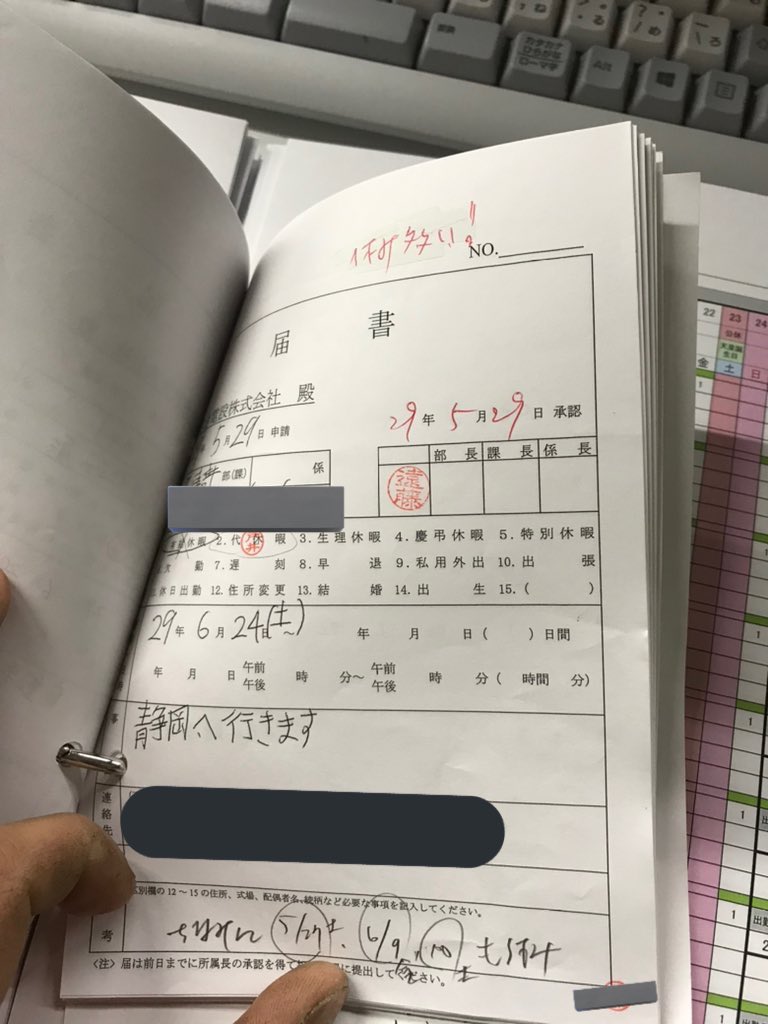 休み多い!!
NO.
届 書
設株式会社 殿
5月29日 申請
29年 5月29日 承認
部(課) 係
部長 課長 係長
遠藤
休暇 2.代休暇 3.生理休暇 4.慶弔休暇 5.特別休暇
欠勤 7.遅刻 8.早退 9.私用外出 10.出張
休日出勤 12.住所変更 13.結婚 14.出生 15.( )
29年6月24日(土)~ 年 月 日( )日間
年 月 日 午前 午後 時 分~ 午前 午後 時 分( 時間 分)
事
静岡へ行きます
連絡先
区別欄の12~15の住所、式場、配偶者名、続柄など必要な事項を記入してください。
考
ちなみに 5/27土、6/9金、10土 も休み
〈注〉届は前日までに所属長の承認を得て に提出してください。
22 23 24
公休
天皇誕生日
金 土 日
カタカナ
ひらがな
ローマ字
変換
Alt